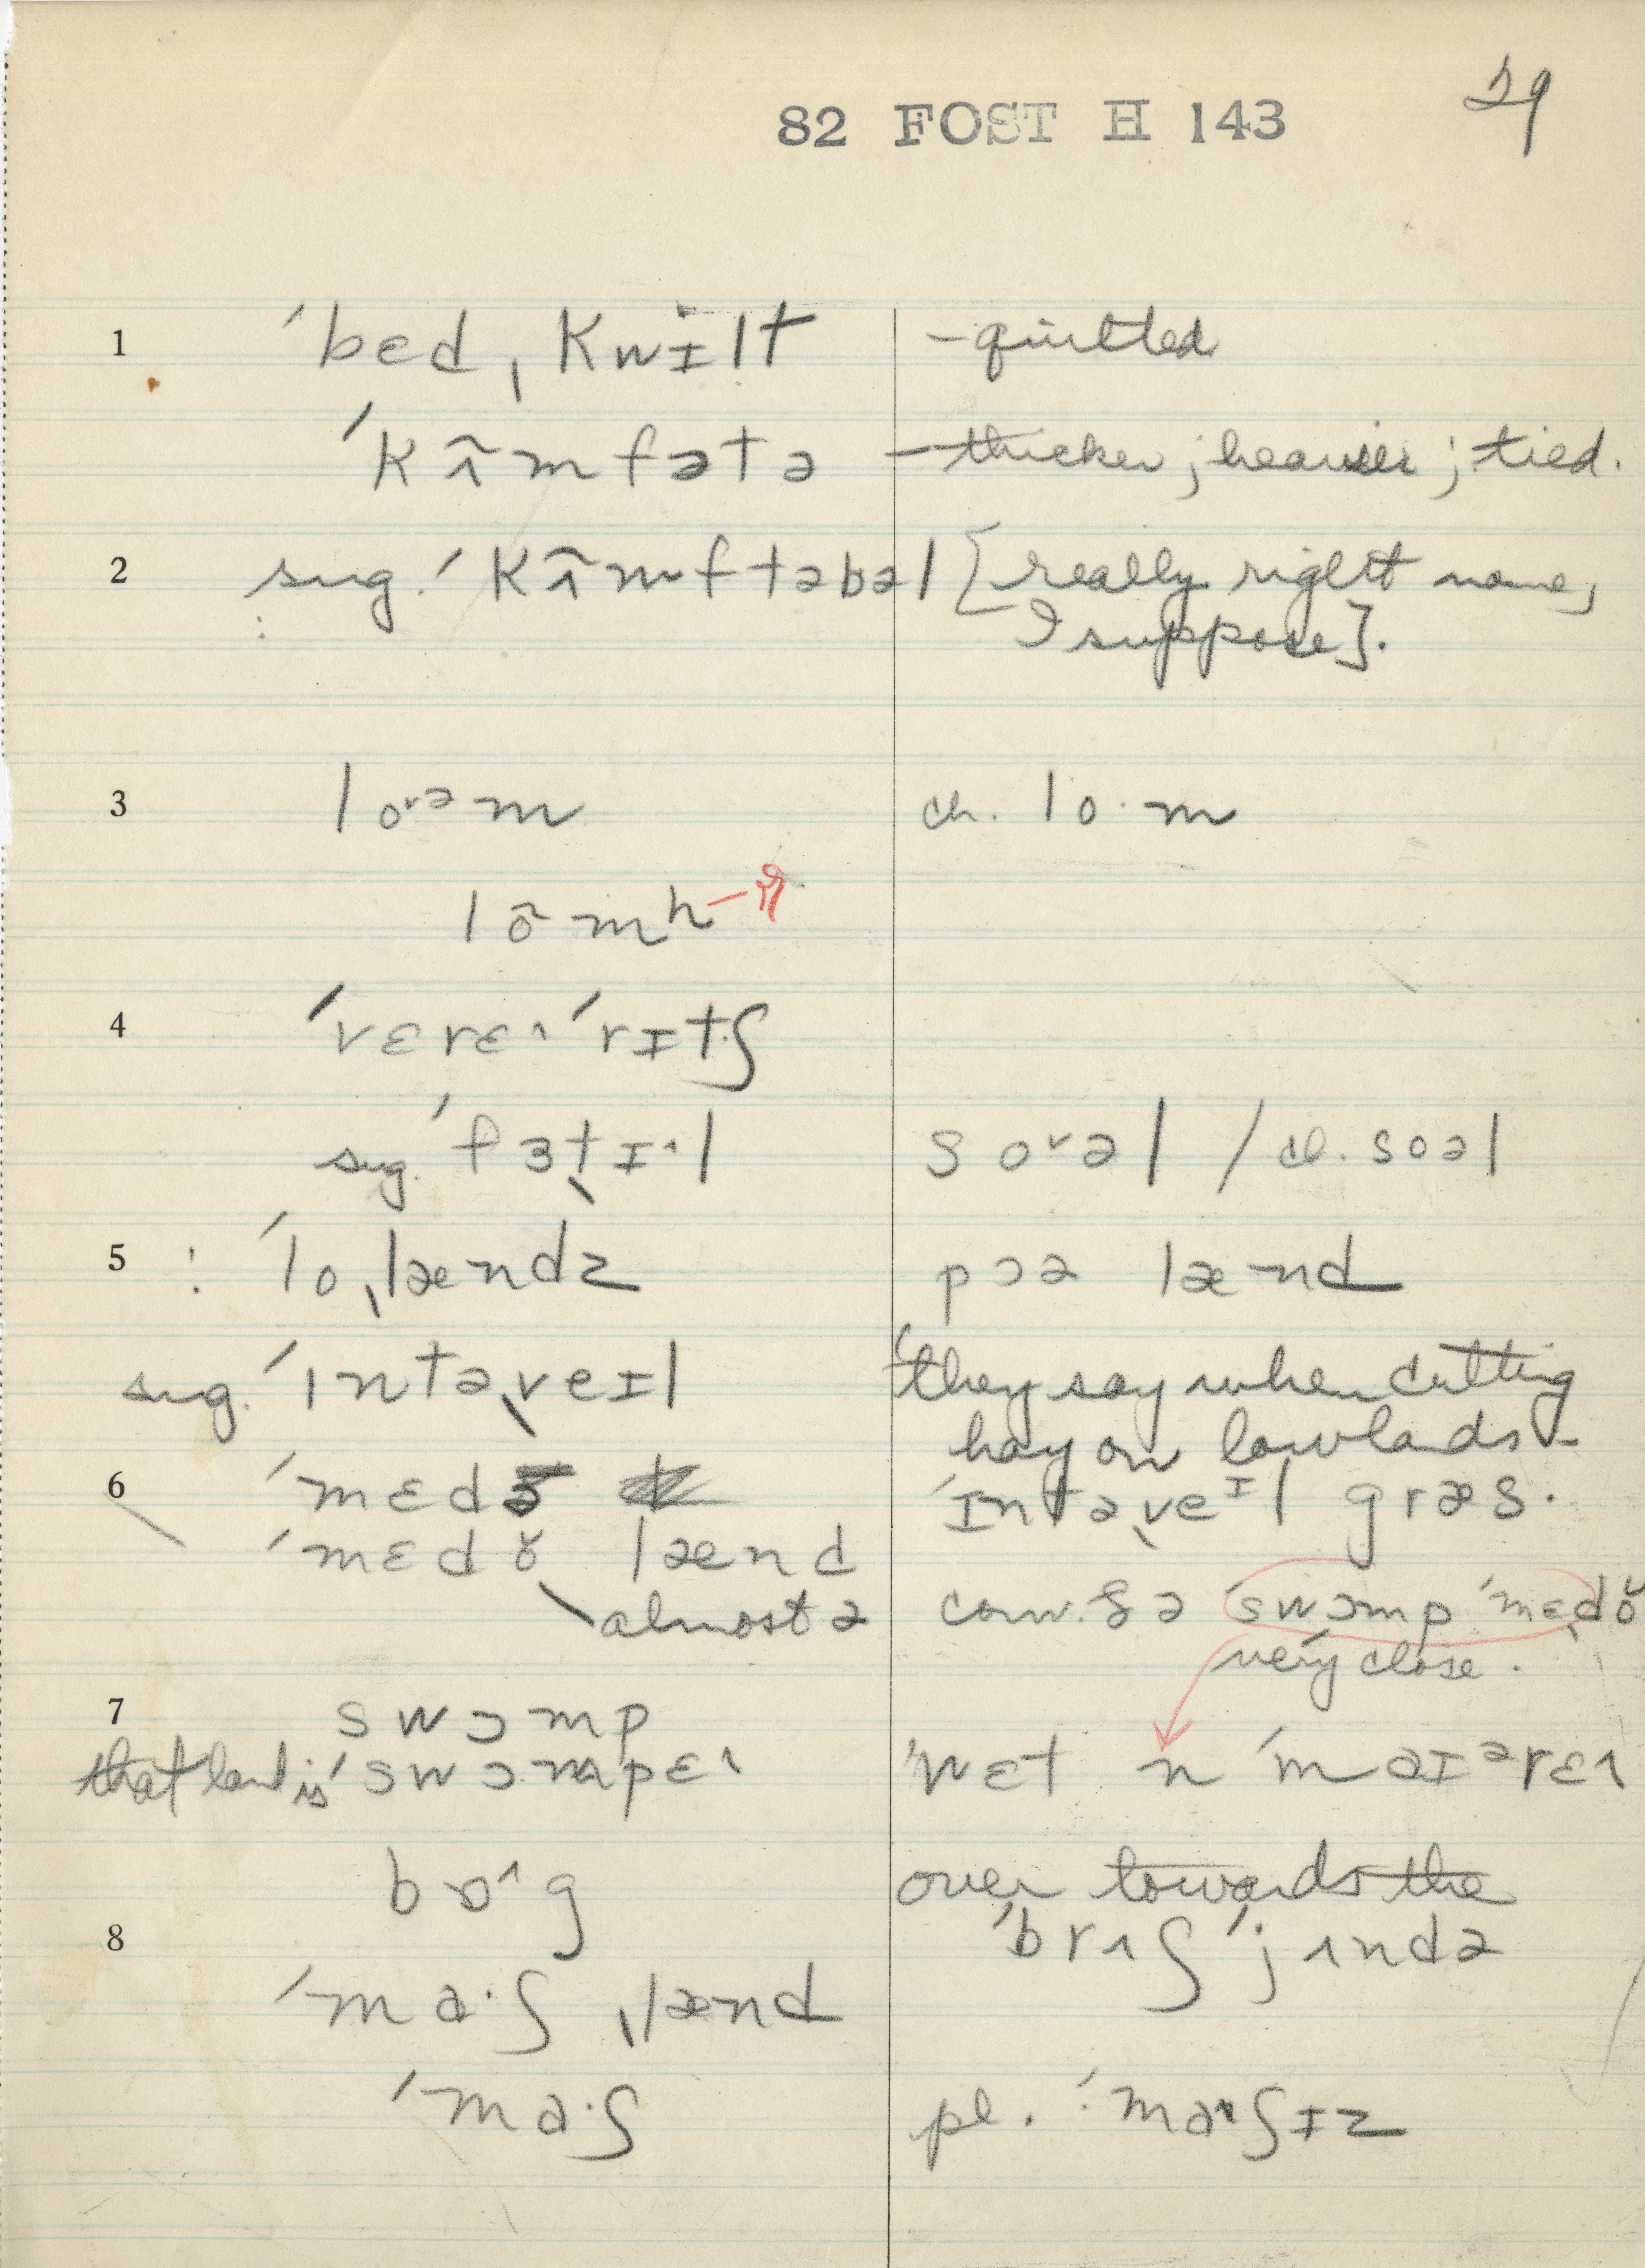 82 FOST H 143 29
1 ˈbed ˌkwɪlt – quiltted
ˈkʌ̃mfətə – thicker; heavier; tied.
2 sug. ˈkʌ̃mftəbəl [really right name,
I suppose].
3 lo˅əm ch. lo·m
lõmh
4 ˈvɛrɛ˄ ˈrɪtʃ
sug. ˈfɜtɪ˄l so˅əl / ch. soəl
5 ! ˈloˌlændz pɔə lænd
sug. ˈɪntəˌveɪl they say when cutting
hay on lowlads –
6 ˈmɛdo ˈɪntəˌveɪl græs.
ˈmɛdŏ lænd
almost ə conv. ðə ˈswɔmp ˈmɛˌdŏ
very close.
7 swɔmp
that land is ˈswɔmpɛ˄ ˈwɛt n ˈmaɪərɛ˄
bɒ˄g over towards the
8 ˈbrʌʃ ˈjʌndə
ˈma·ʃ ˌlænd
ˈma·ʃ pl. ˈma˄ʃɪz